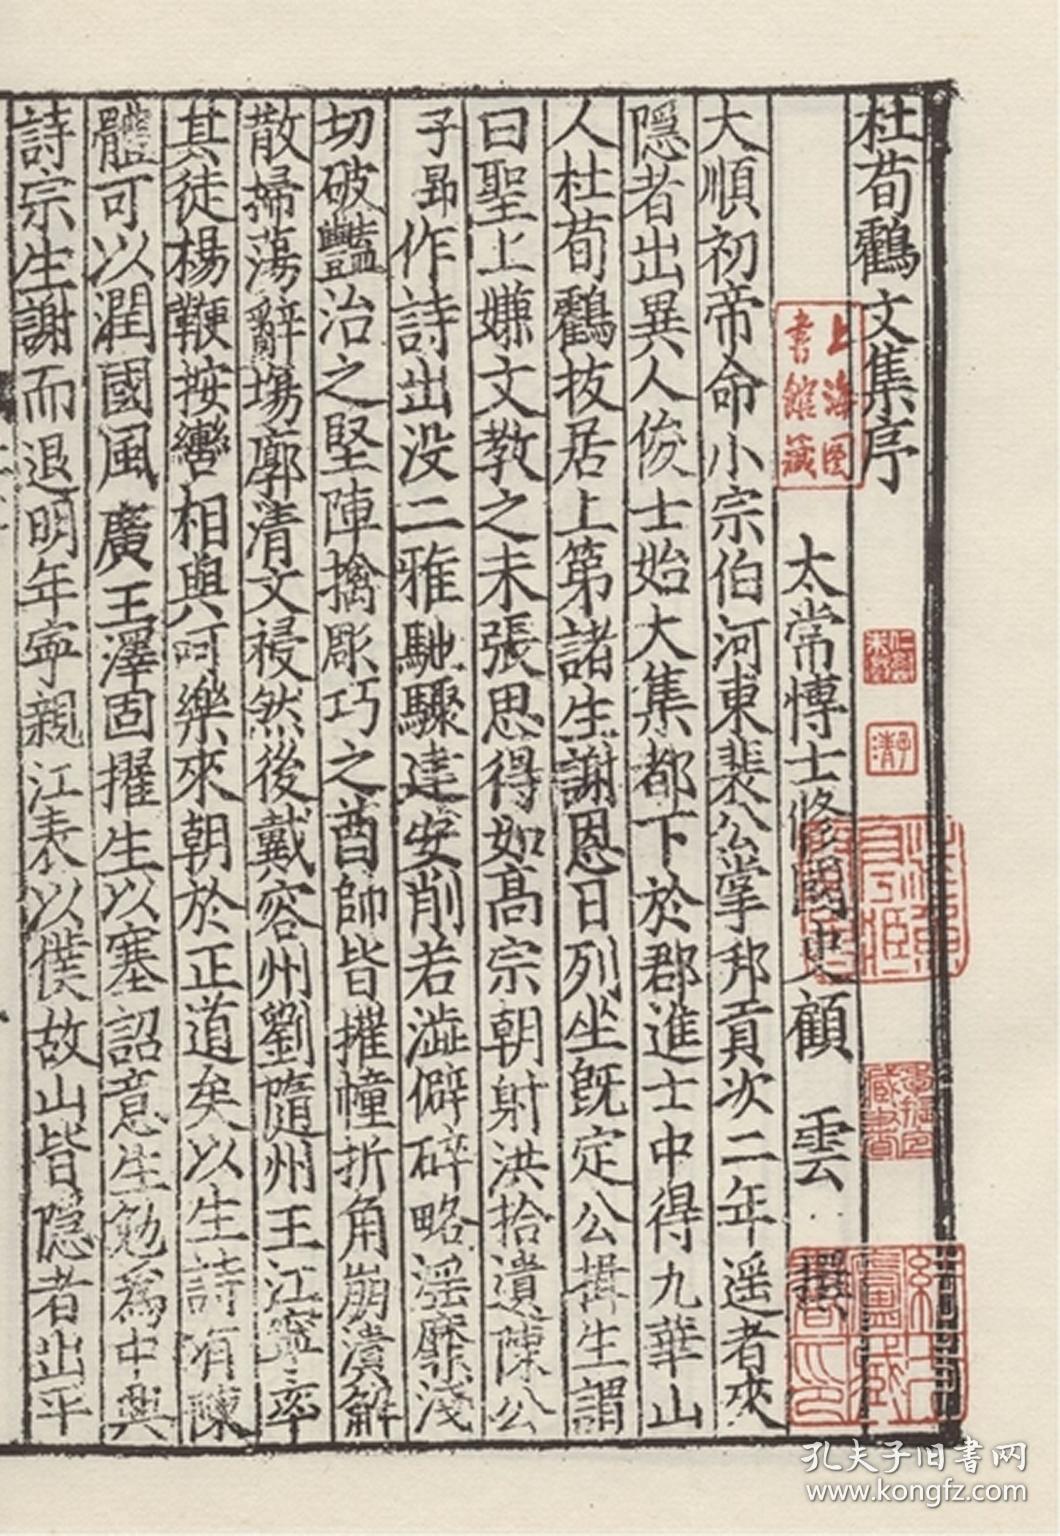 杜荀鸖文集序
太常博士修國史顧雲撰
大順初帝命小宗伯河東裴公掌邦貢次二年遥者來
隱者出異人俊士始大集都下於郡進士中得九華山
人杜荀鸖拔居上第諸生謝恩日列坐旣定公揖生謂
曰聖上嫌文教之未張思得如高宗朝射洪拾遺陳公
子昂作詩出没二雅馳驟建安削若澁僻碎略滛靡淺
切破豔冶之堅陣擒彫巧之酋帥皆摧幢折角崩潰解
散掃蕩辭場廓清文祲然後戴容州劉隨州王江寧率
其徒楊鞭按轡相與呵樂來朝於正道矣以生詩有陳
體可以潤國風廣王澤固擢生以塞詔意生勉爲中興
詩宗生謝而退明年寜親江表以僕故山皆隠者出平
上海圖書館藏
孔夫子旧书网
www.kongfz.com